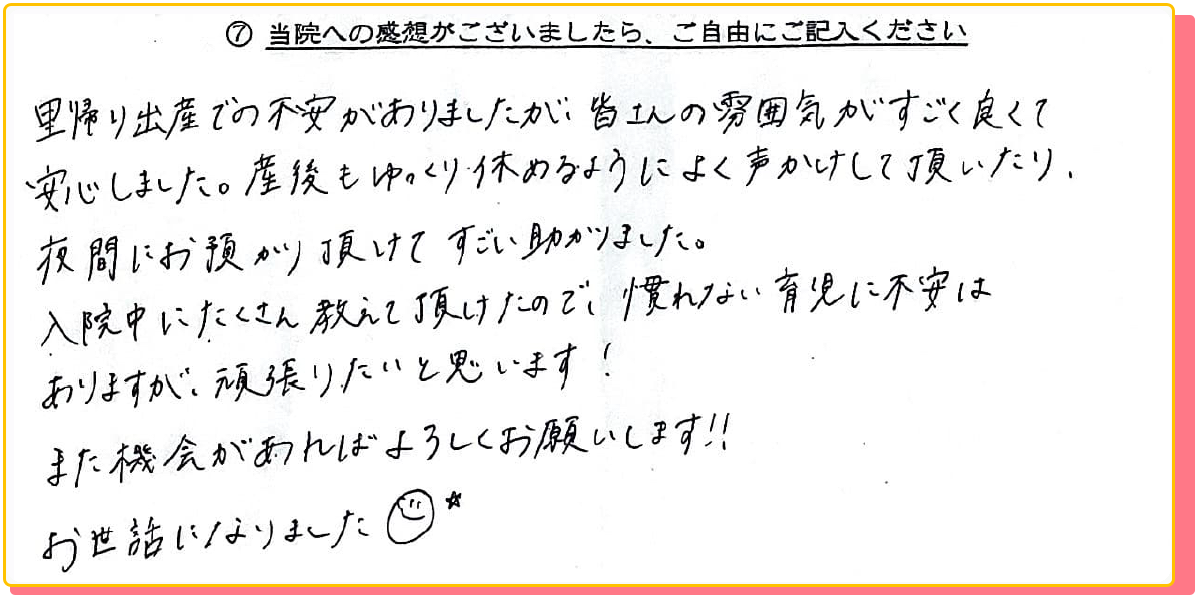 ⑦ 当院への感想がございましたら、ご自由にご記入ください
里帰り出産での不安がありましたが、皆さんの雰囲気がすごく良くて
安心しました。産後もゆっくり休めるようによく声かけして頂いたり、
夜間にお預かり頂けてすごい助かりました。
入院中にたくさん教えて頂けたので、慣れない育児に不安は
ありますが、頑張りたいと思います!
また機会があればよろしくお願いします!!
お世話になりました